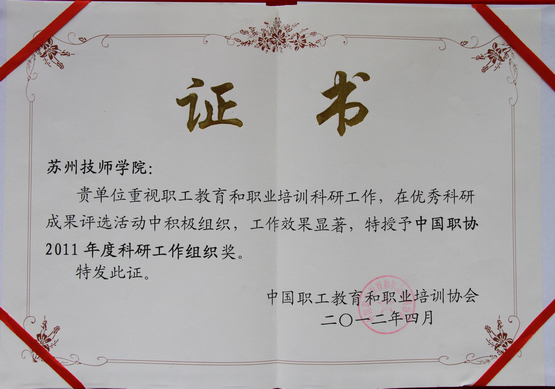 证书
苏州技师学院：
贵单位重视职工教育和职业培训科研工作，在优秀科研
成果评选活动中积极组织，工作效果显著，特授予中国职协
2011年度科研工作组织奖。
特发此证。
中国职工教育和职业培训协会
二〇一二年四月